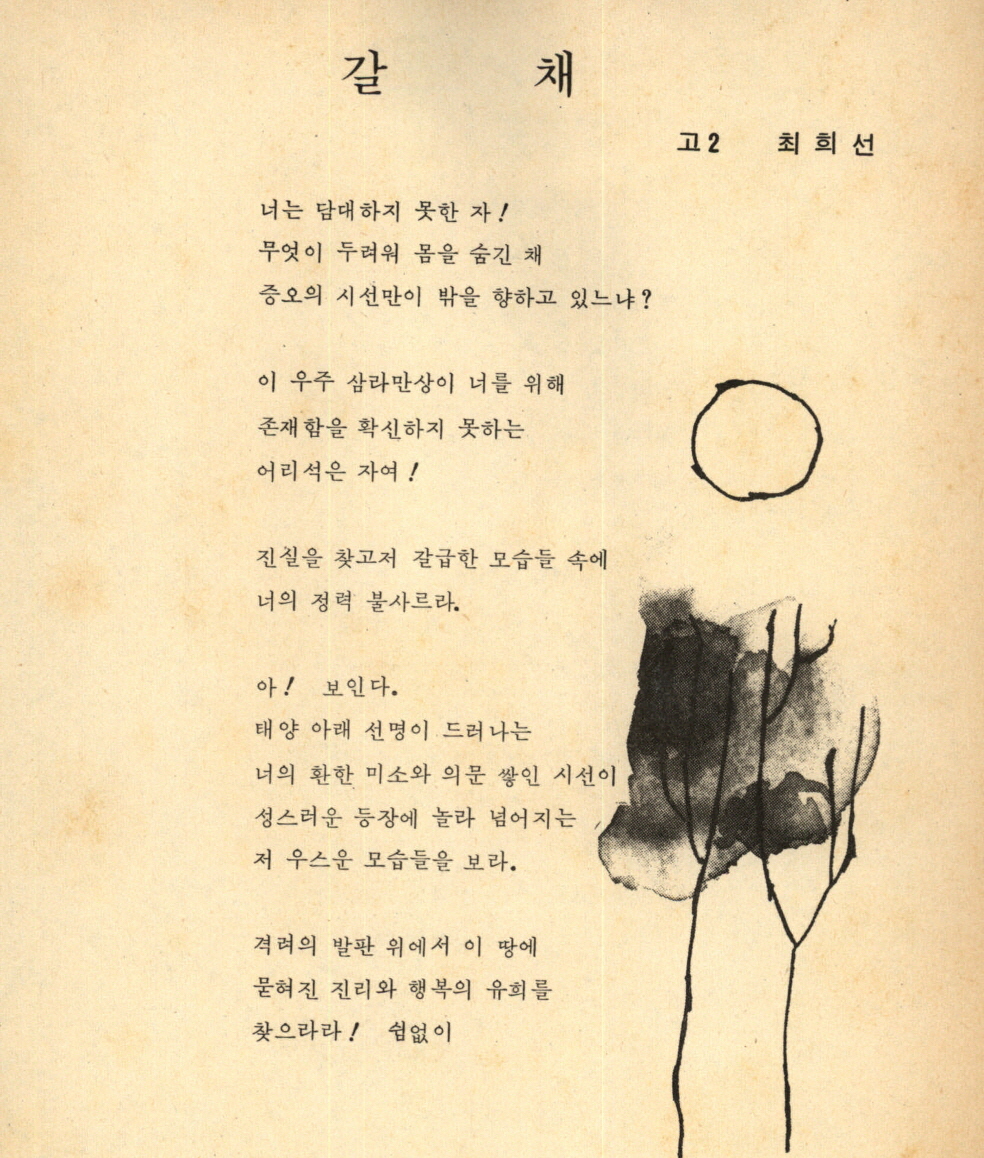 갈 채
고2 최희선
너는 담대하지 못한 자!
무엇이 두려워 몸을 숨긴 채
증오의 시선만이 밖을 향하고 있느냐?
이 우주 삼라만상이 너를 위해
존재함을 확신하지 못하는
어리석은 자여!
진실을 찾고저 갈급한 모습들 속에
너의 정력 불사르라.
아! 보인다.
태양 아래 선명이 드러나는
너의 환한 미소와 의문 쌓인 시선이
성스러운 등장에 놀라 넘어지는
저 우스운 모습들을 보라.
격려의 발판 위에서 이 땅에
묻혀진 진리와 행복의 유희를
찾으라라! 쉼없이